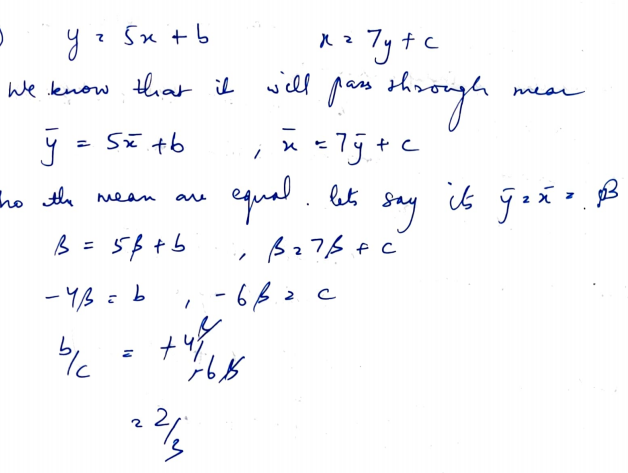 ) y = 5x + b x = 7y + c
We know that it will pass through mean
ȳ = 5x̄ + b , x̄ = 7ȳ + c
the mean are equal. lets say its ȳ = x̄ = β
β = 5β + b , β = 7β + c
-4β = b , -6β = c
b/c = +4β/+6β
= 2/3